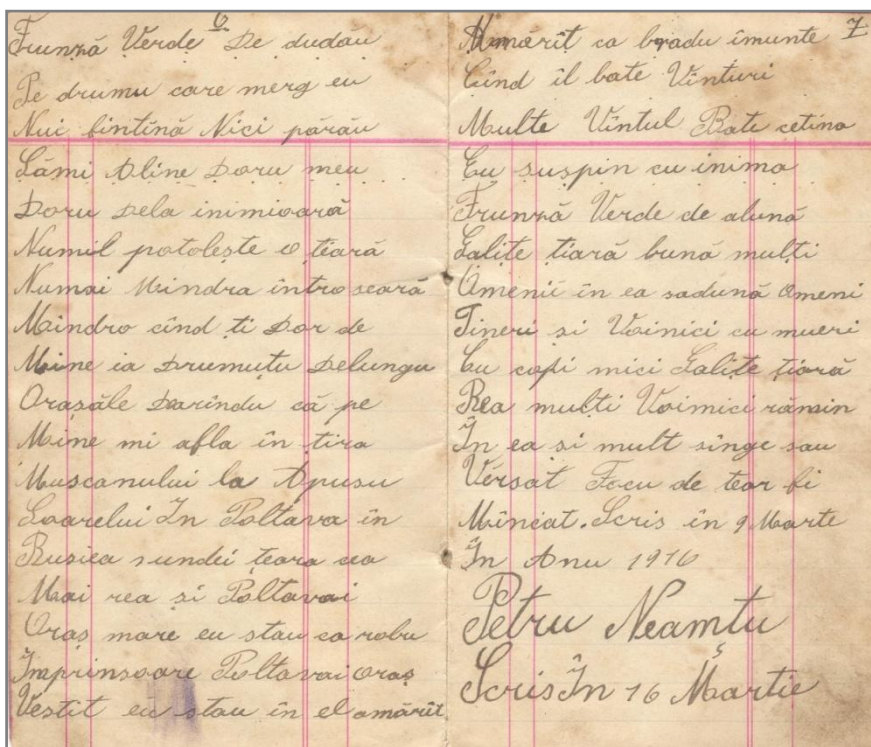 6
Frunză Verde De dudău
Pe drumu care merg eu
Nui fîntînă Nici părău
Sămi Aline Doru meu
Doru Dela inimioară
Numil potolește o țiară
Numai Mindra intro seară
Mindro cînd ti Dor de
Mine ia Drumuțu Delungu
Orașăle Darîndu că pe
Mine mi afla în țira
Muscanului la Apusu
Soarelui În Poltava în
Rusiea sundei țeara cea
Mai rea și Poltavai
Oraș mare eu stau ca robu
Împrinsoare Poltavai oraș
Vestit eu stau în el amărît
7
Amărît ca bradu imunte
Cînd îl bate Vînturi
Multe Vîntul Bate cetina
Eu suspin cu inima
Frunză Verde de alună
Galiție țiară bună mulți
Omenii în ea sadună Omeni
Tineri si Voinici cu mueri
Cu copi mici Galiție țiară
Rea mulți Voinici rămin
În ea si mult sînge sau
Vérsat Focu de tear fi
Mîncat. Scris în 9 Marte
În Anu 1916
Petru Neamțu
Scris În 16 Martie